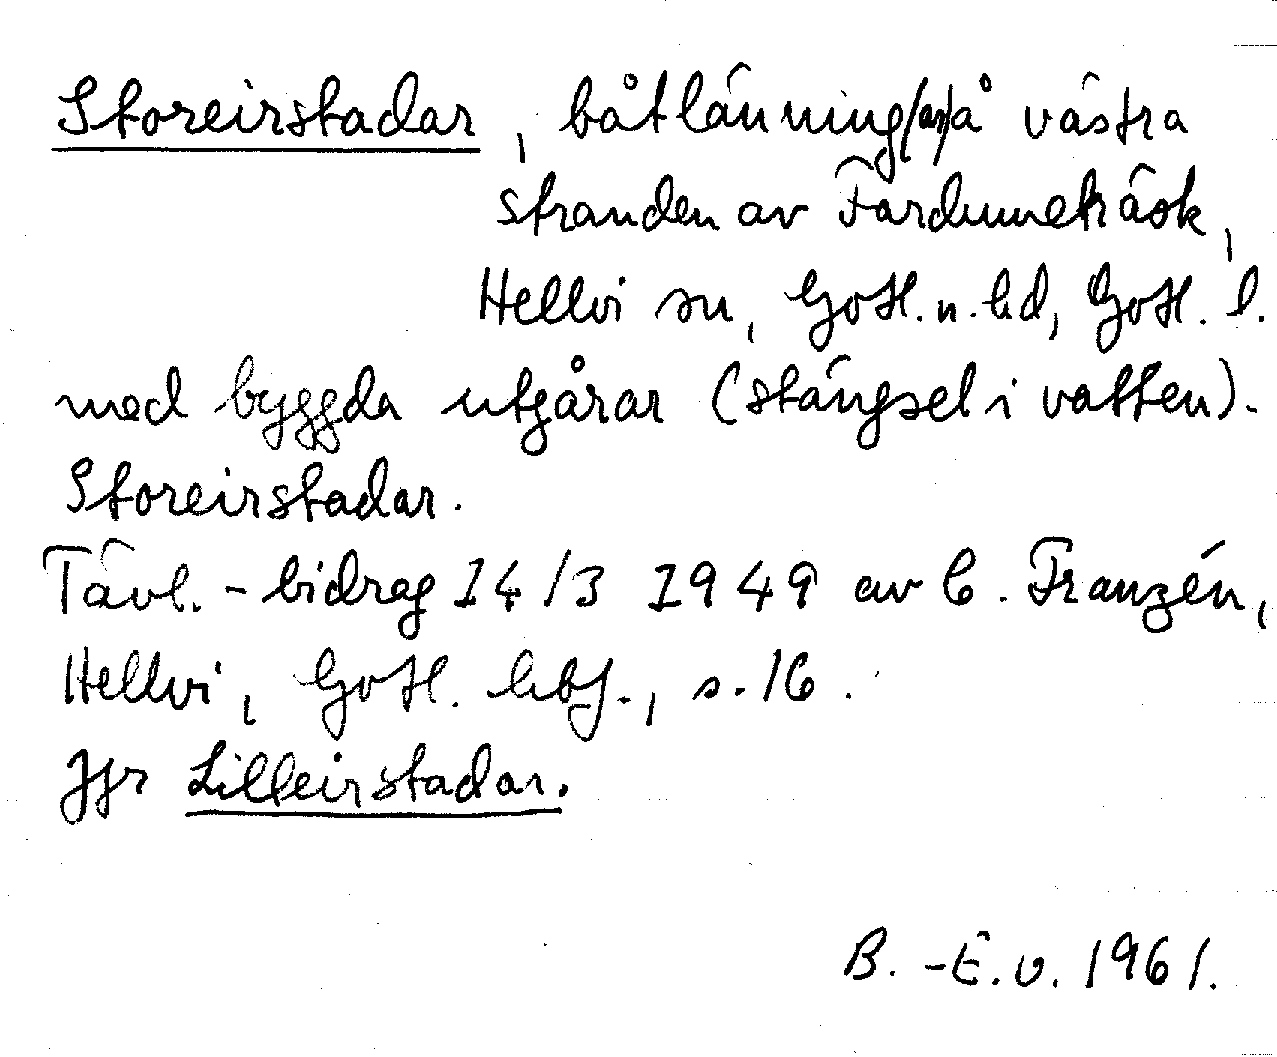 Storeirstadar, båtlänning(ar) å västra
stranden av Fardumeträsk,
Hellvi sn, Gotl. n. hd, Gotl. l.
med byggda utgårar (stängsel i vatten).
Storeirstadar.
Tävl.-bidrag 14/3 1949 av C. Franzén,
Hellvi, Gotl. hbf., s. 16.
Jfr Lilleirstadar.
B.-E.v. 1961.